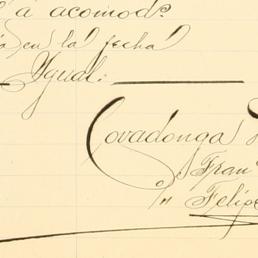 á acomodº
en la fecha
Igual:
Covadonga
" Fran
" Felipe